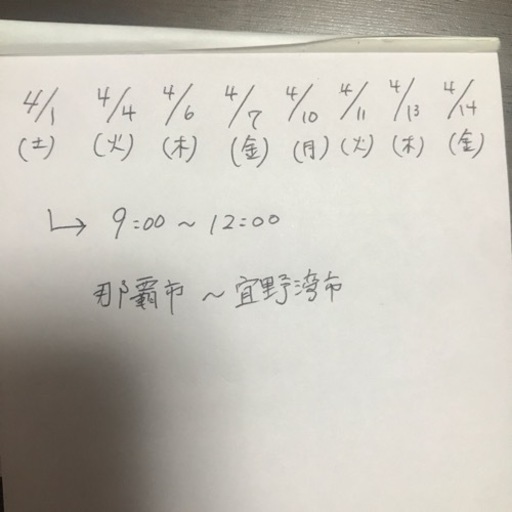 4/1 4/4 4/6 4/7 4/10 4/11 4/13 4/14
(土) (火) (木) (金) (月) (火) (木) (金)
↳ 9:00 ~ 12:00
那覇市 ~ 宜野湾市